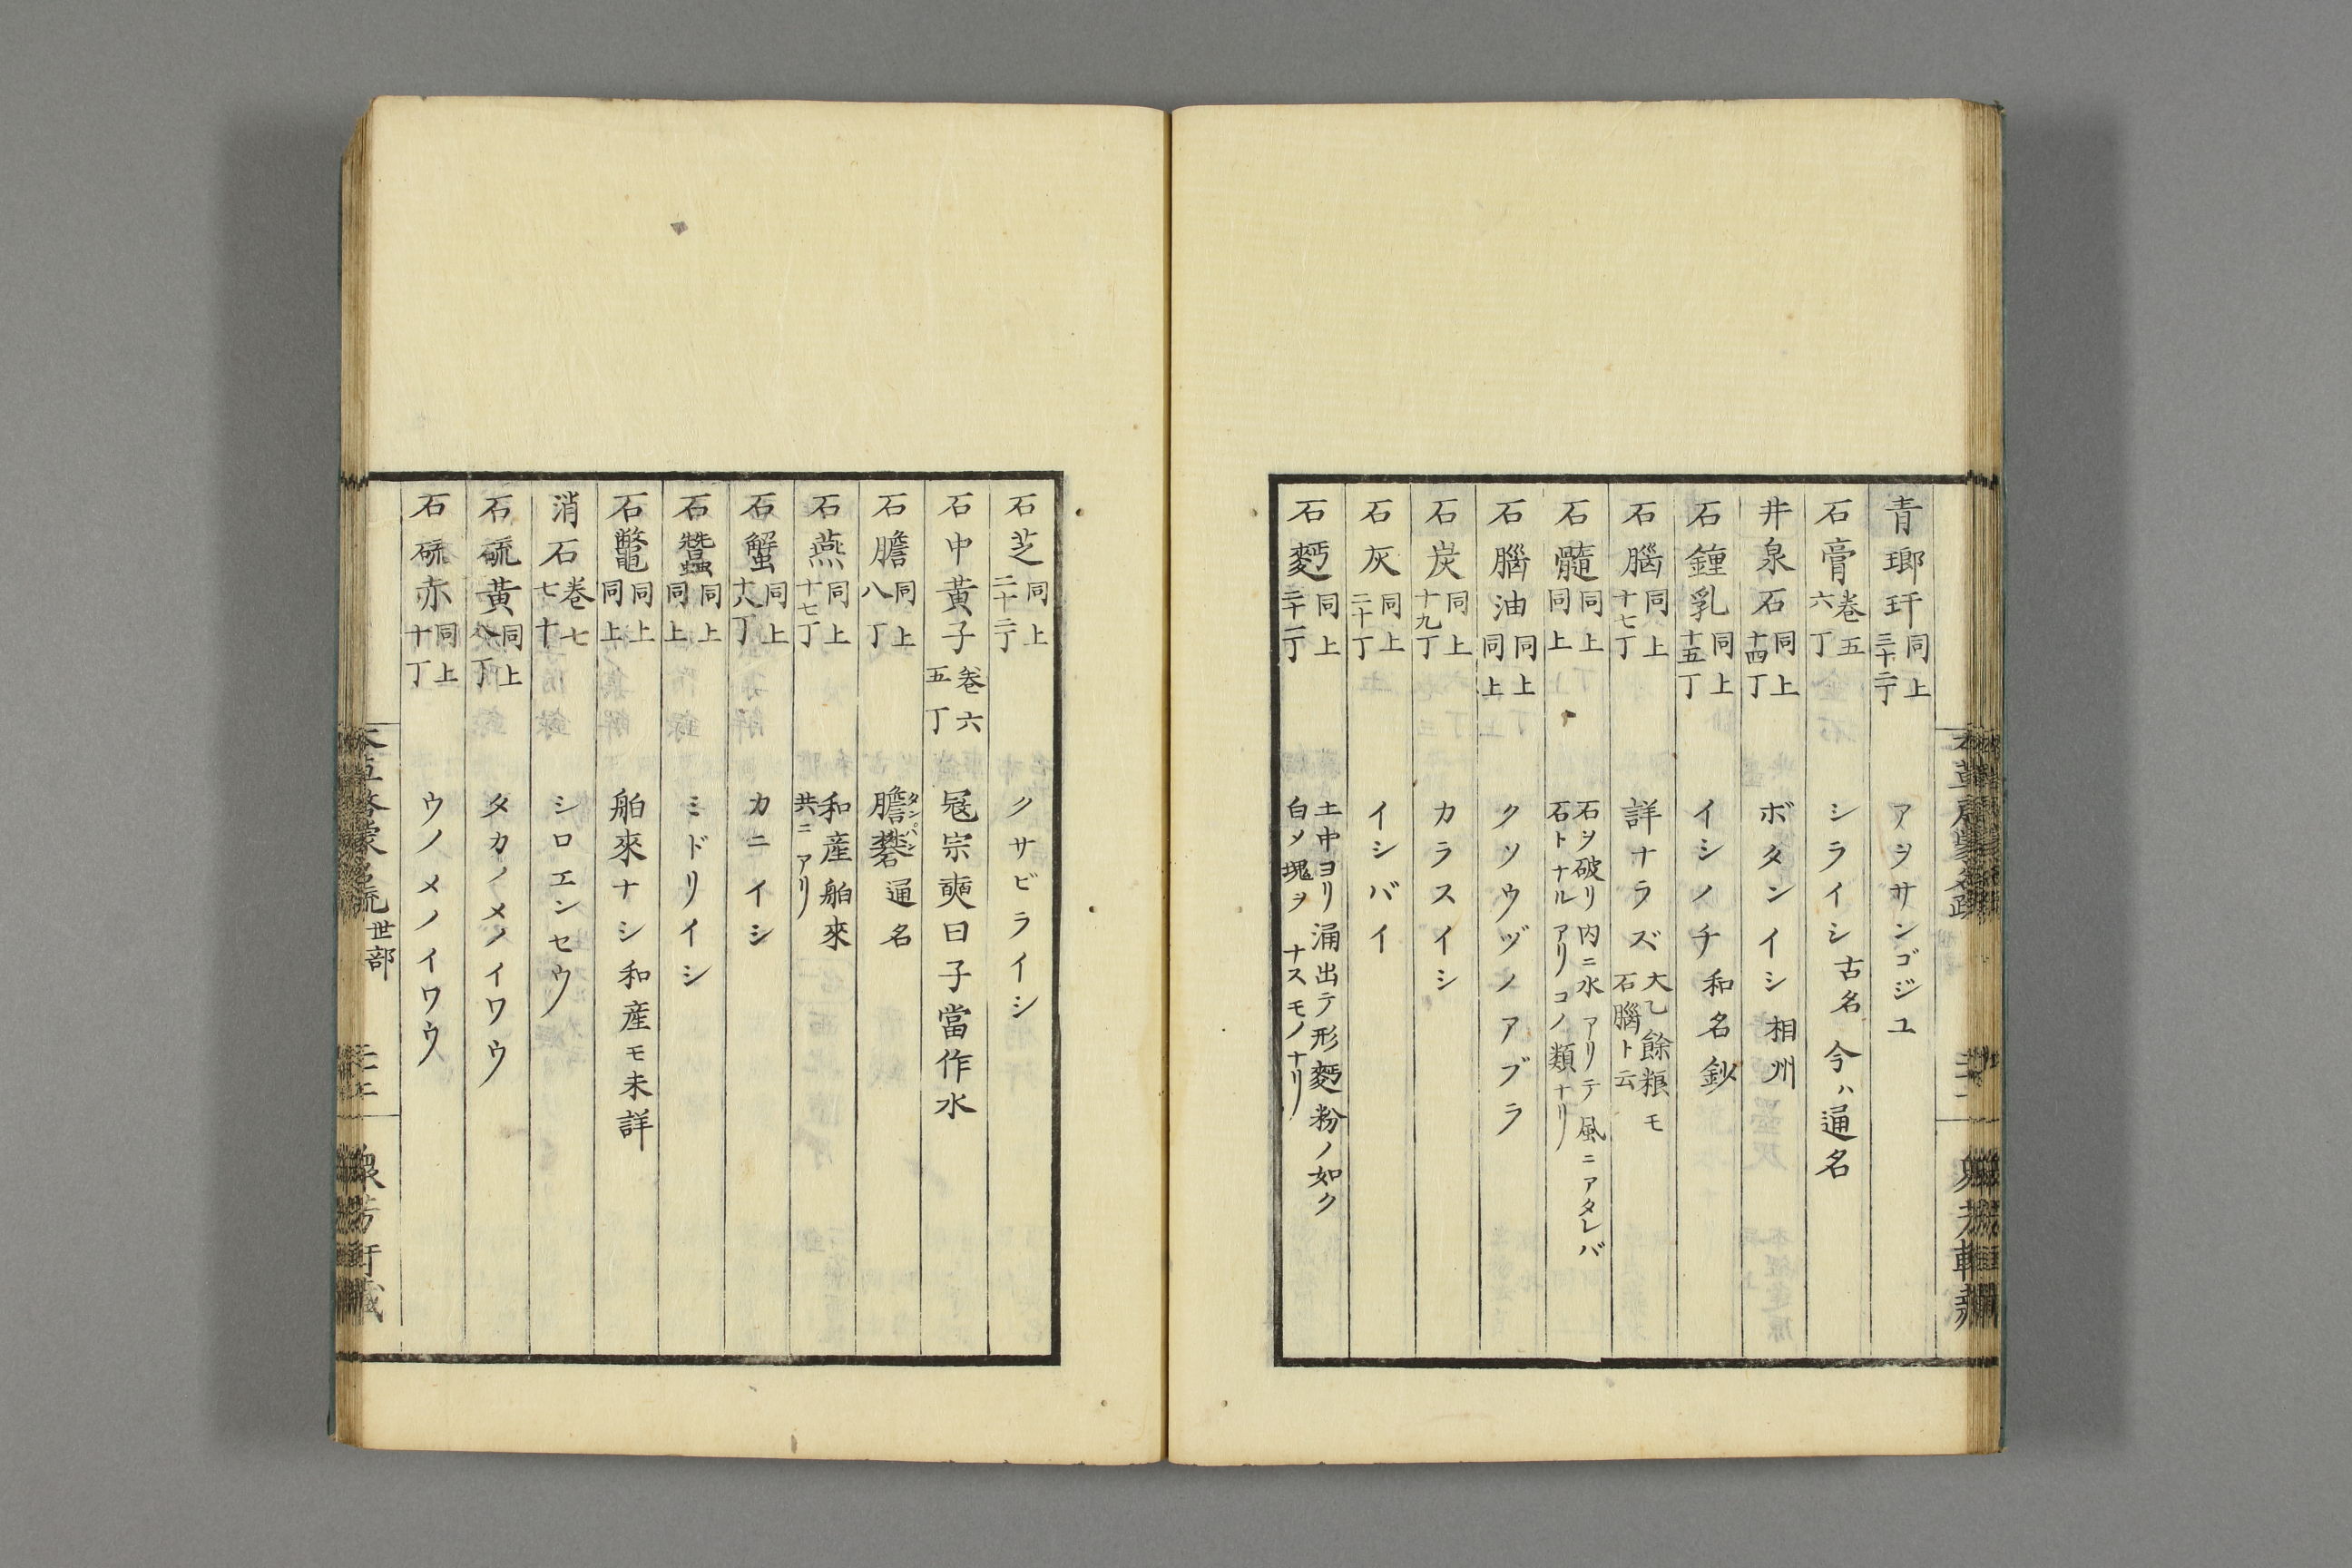 青瑯玕 同上 三十二丁 アヲサンゴジユ
石膏 卷五 六丁 シライシ古名 今ハ通名
井泉石 同上 十四丁 ボタンイシ 相州
石鐘乳 同上 十五丁 イシノチ 和名鈔
石腦 同上 十七丁 詳ナラズ 大乙餘粮モ 石腦ト云
石髓 同上 同上 石ヲ破リ內ニ水アリテ風ニアタレバ 石トナルアリコノ類ナリ
石腦油 同上 同上 クソウヅノアブラ
石炭 同上 十九丁 カラスイシ
石灰 同上 二十丁 イシバイ
石麪 同上 二十一丁 土中ヨリ涌出テ形麪粉ノ如ク 白メ塊ヲナスモノナリ
石芝 同上 二十二丁 クサビライシ
石中黃子 卷六 五丁 冦宗奭曰子當作水
石膽 同上 八丁 膽礬 タンパン 通名
石燕 同上 十七丁 和產舶來 共ニアリ
石蟹 同上 十八丁 カニイシ
石蠶 同上 同上 ミドリイシ
石鼈 同上 同上 舶來ナシ和產モ未詳
消石 卷七 七十 シロエンセウ
石硫黃 同上 八丁 タカノメノイワウ
石硫赤 同上 十丁 ウノメノイワウ
世部